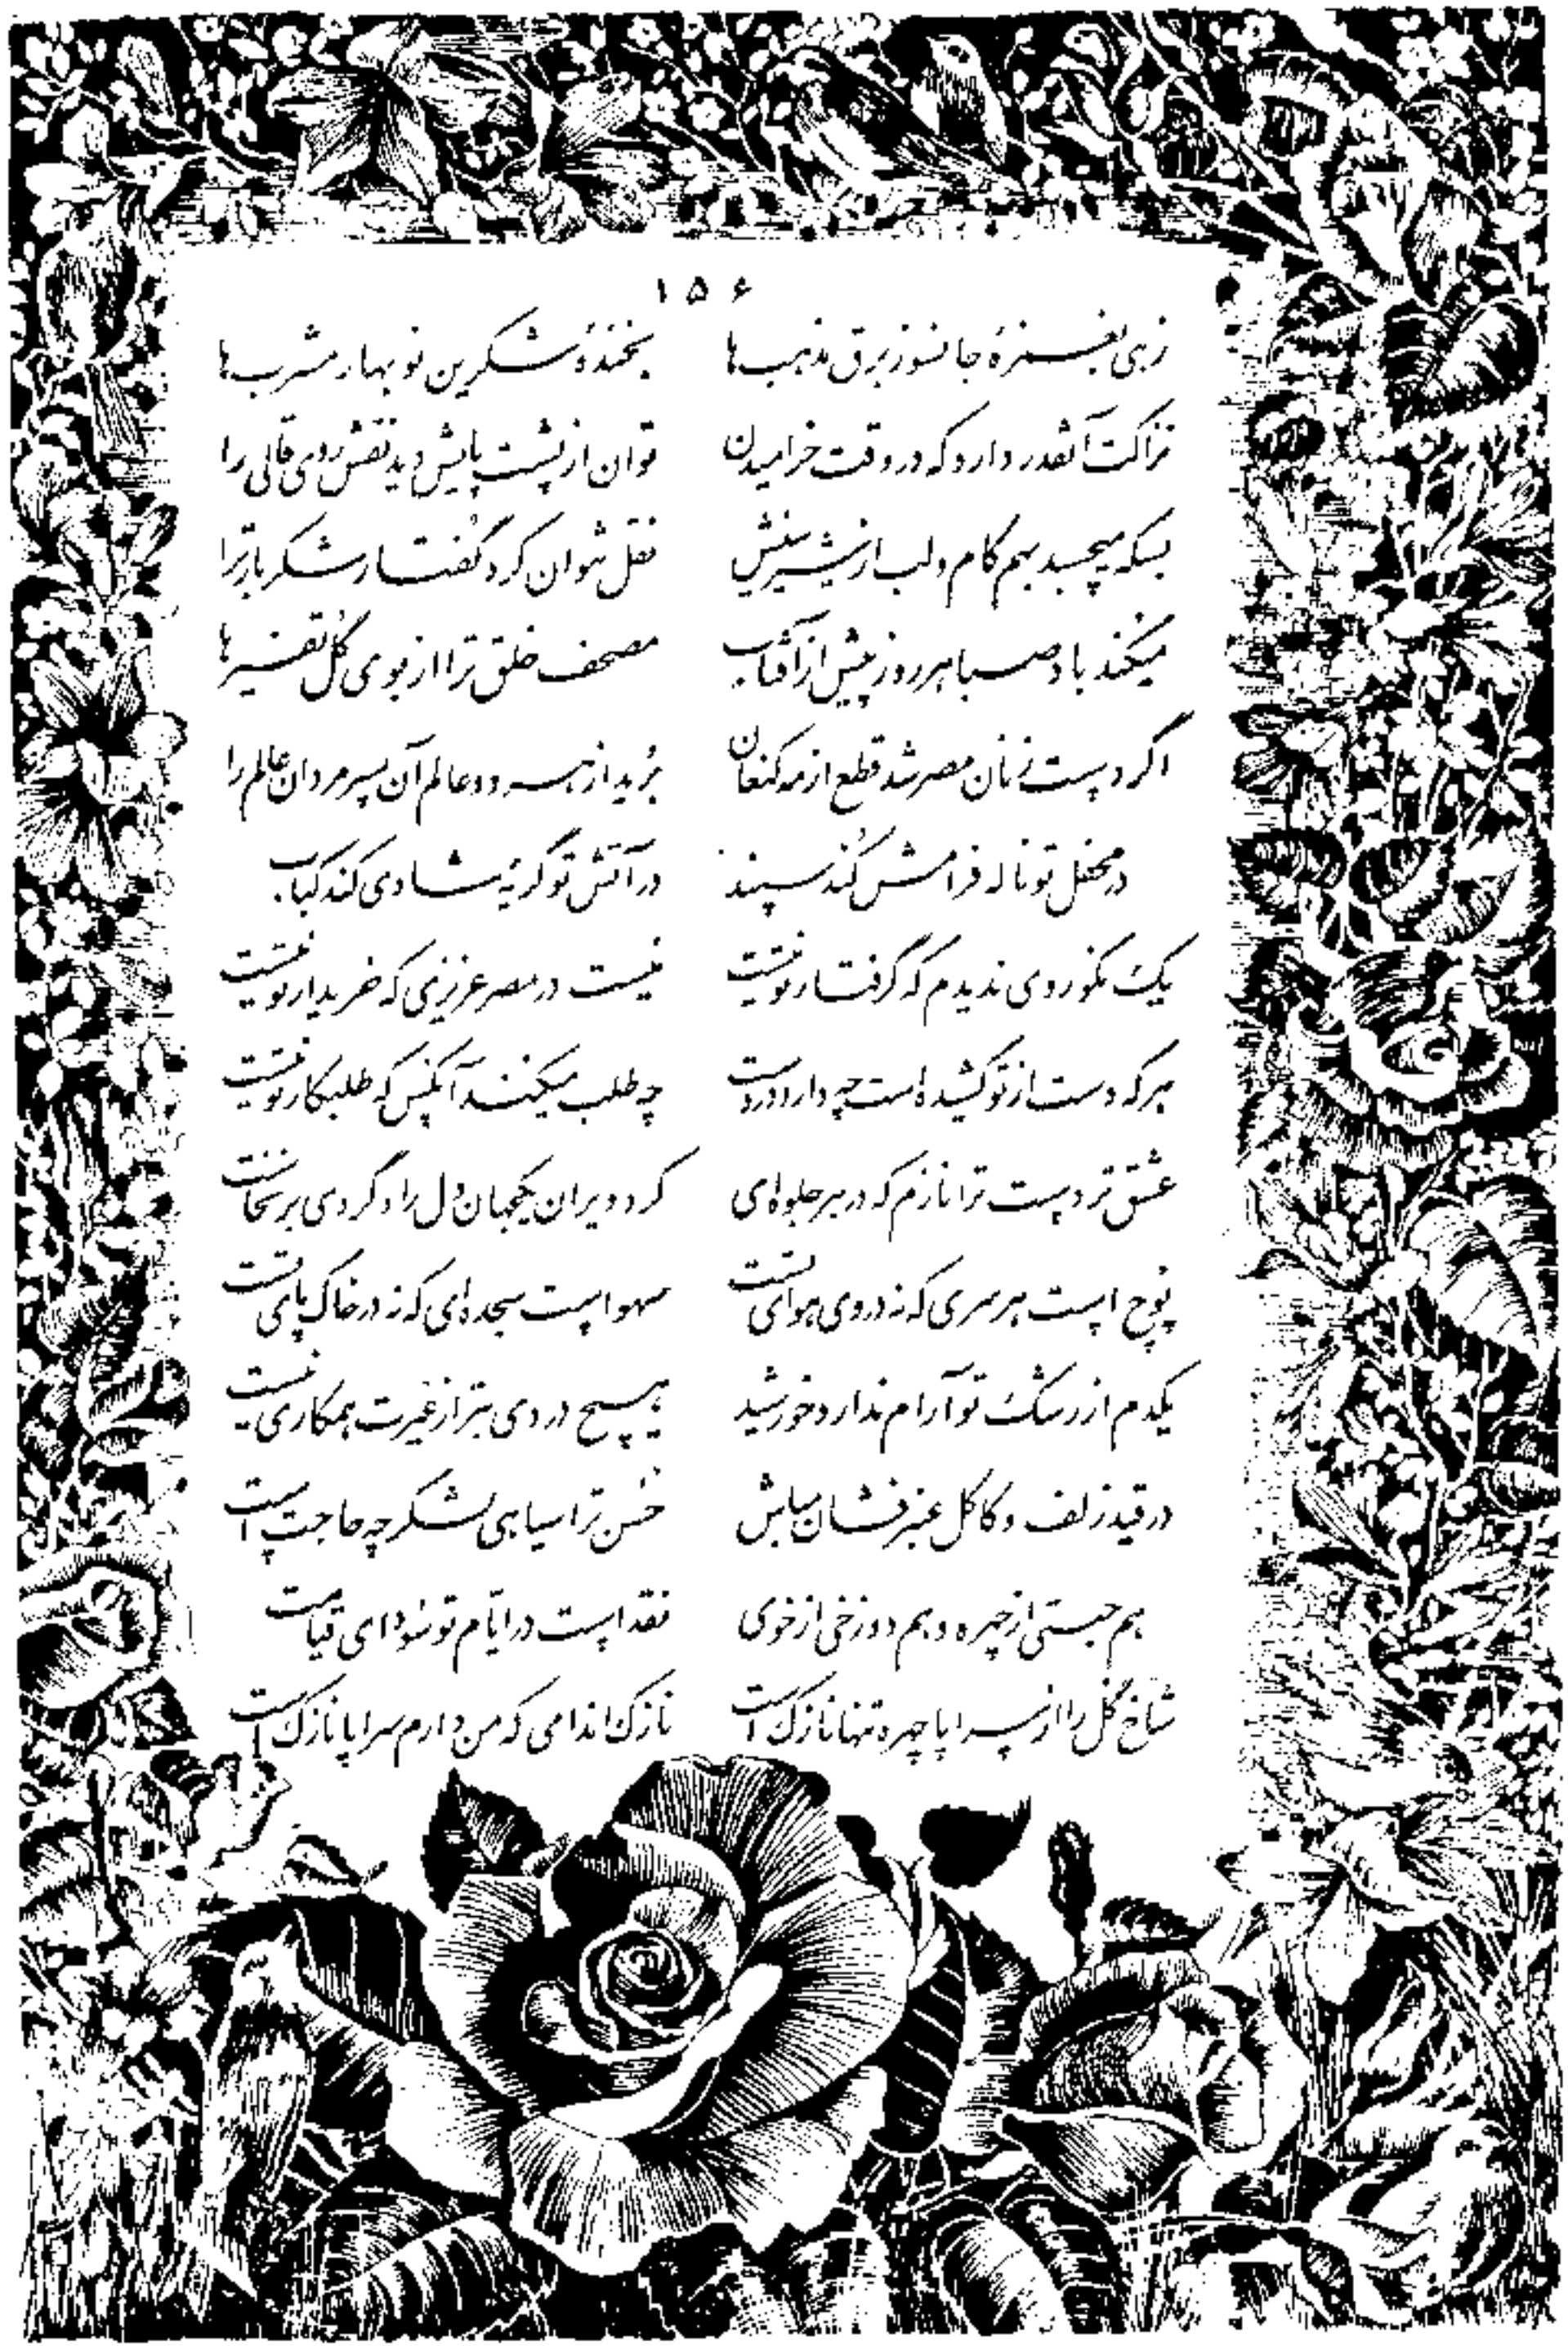 ۱۵۶
زهی بغمزهٔ جانسوز برق مذهب‌ها بخندهٔ شکرین نوبهار مشرب‌ها
نزاکت آنقدر دارد که در وقت خرامیدن توان از پشت پایش دید نقش روی قالی را
بسکه میچسبد بهم کام و لب از شیرینیش نقل نتوان کرد گفتار شکربار ترا
میکند باد صبا هر روز پیش از آفتاب مصحف خلق ترا از بوی گل تفسیرها
اگر دست زنان مصر شد قطع از مه کنعان برید از هر دو عالم آن پسر مردان عالم را
در محفل تو ناله فرامش کند سپند در آتش تو گریهٔ شادی کند کباب
یک نکو روی ندیدم که گرفتار تو نیست نیست در مصر عزیزی که خریدار تو نیست
هر که دست از تو کشیده‌است چه دارد در دست چه طلب میکند آنکس که طلبکار تو نیست
عشق تردست ترا نازم که در هر جلوه‌ای کرد ویران یکجهان دل را و گردی برنخاست
پوچ است هر سری که نه در وی هوای تست سهو است سجده‌ای که نه در خاک پای تست
یکدم از رشک تو آرام ندارد خورشید هیچ دردی بتر از غیرت همکاری نیست
در قید زلف و کاکل عنبرفشان مباش حسن ترا سیاهی لشکر چه حاجت است
هم جنتی از چهره و هم دوزخی از خوی نقد است در ایام تو سودای قیامت
شاخ گل را از سراپا چهره تنها نازک است نازک اندامی که من دارم سراپا نازک است